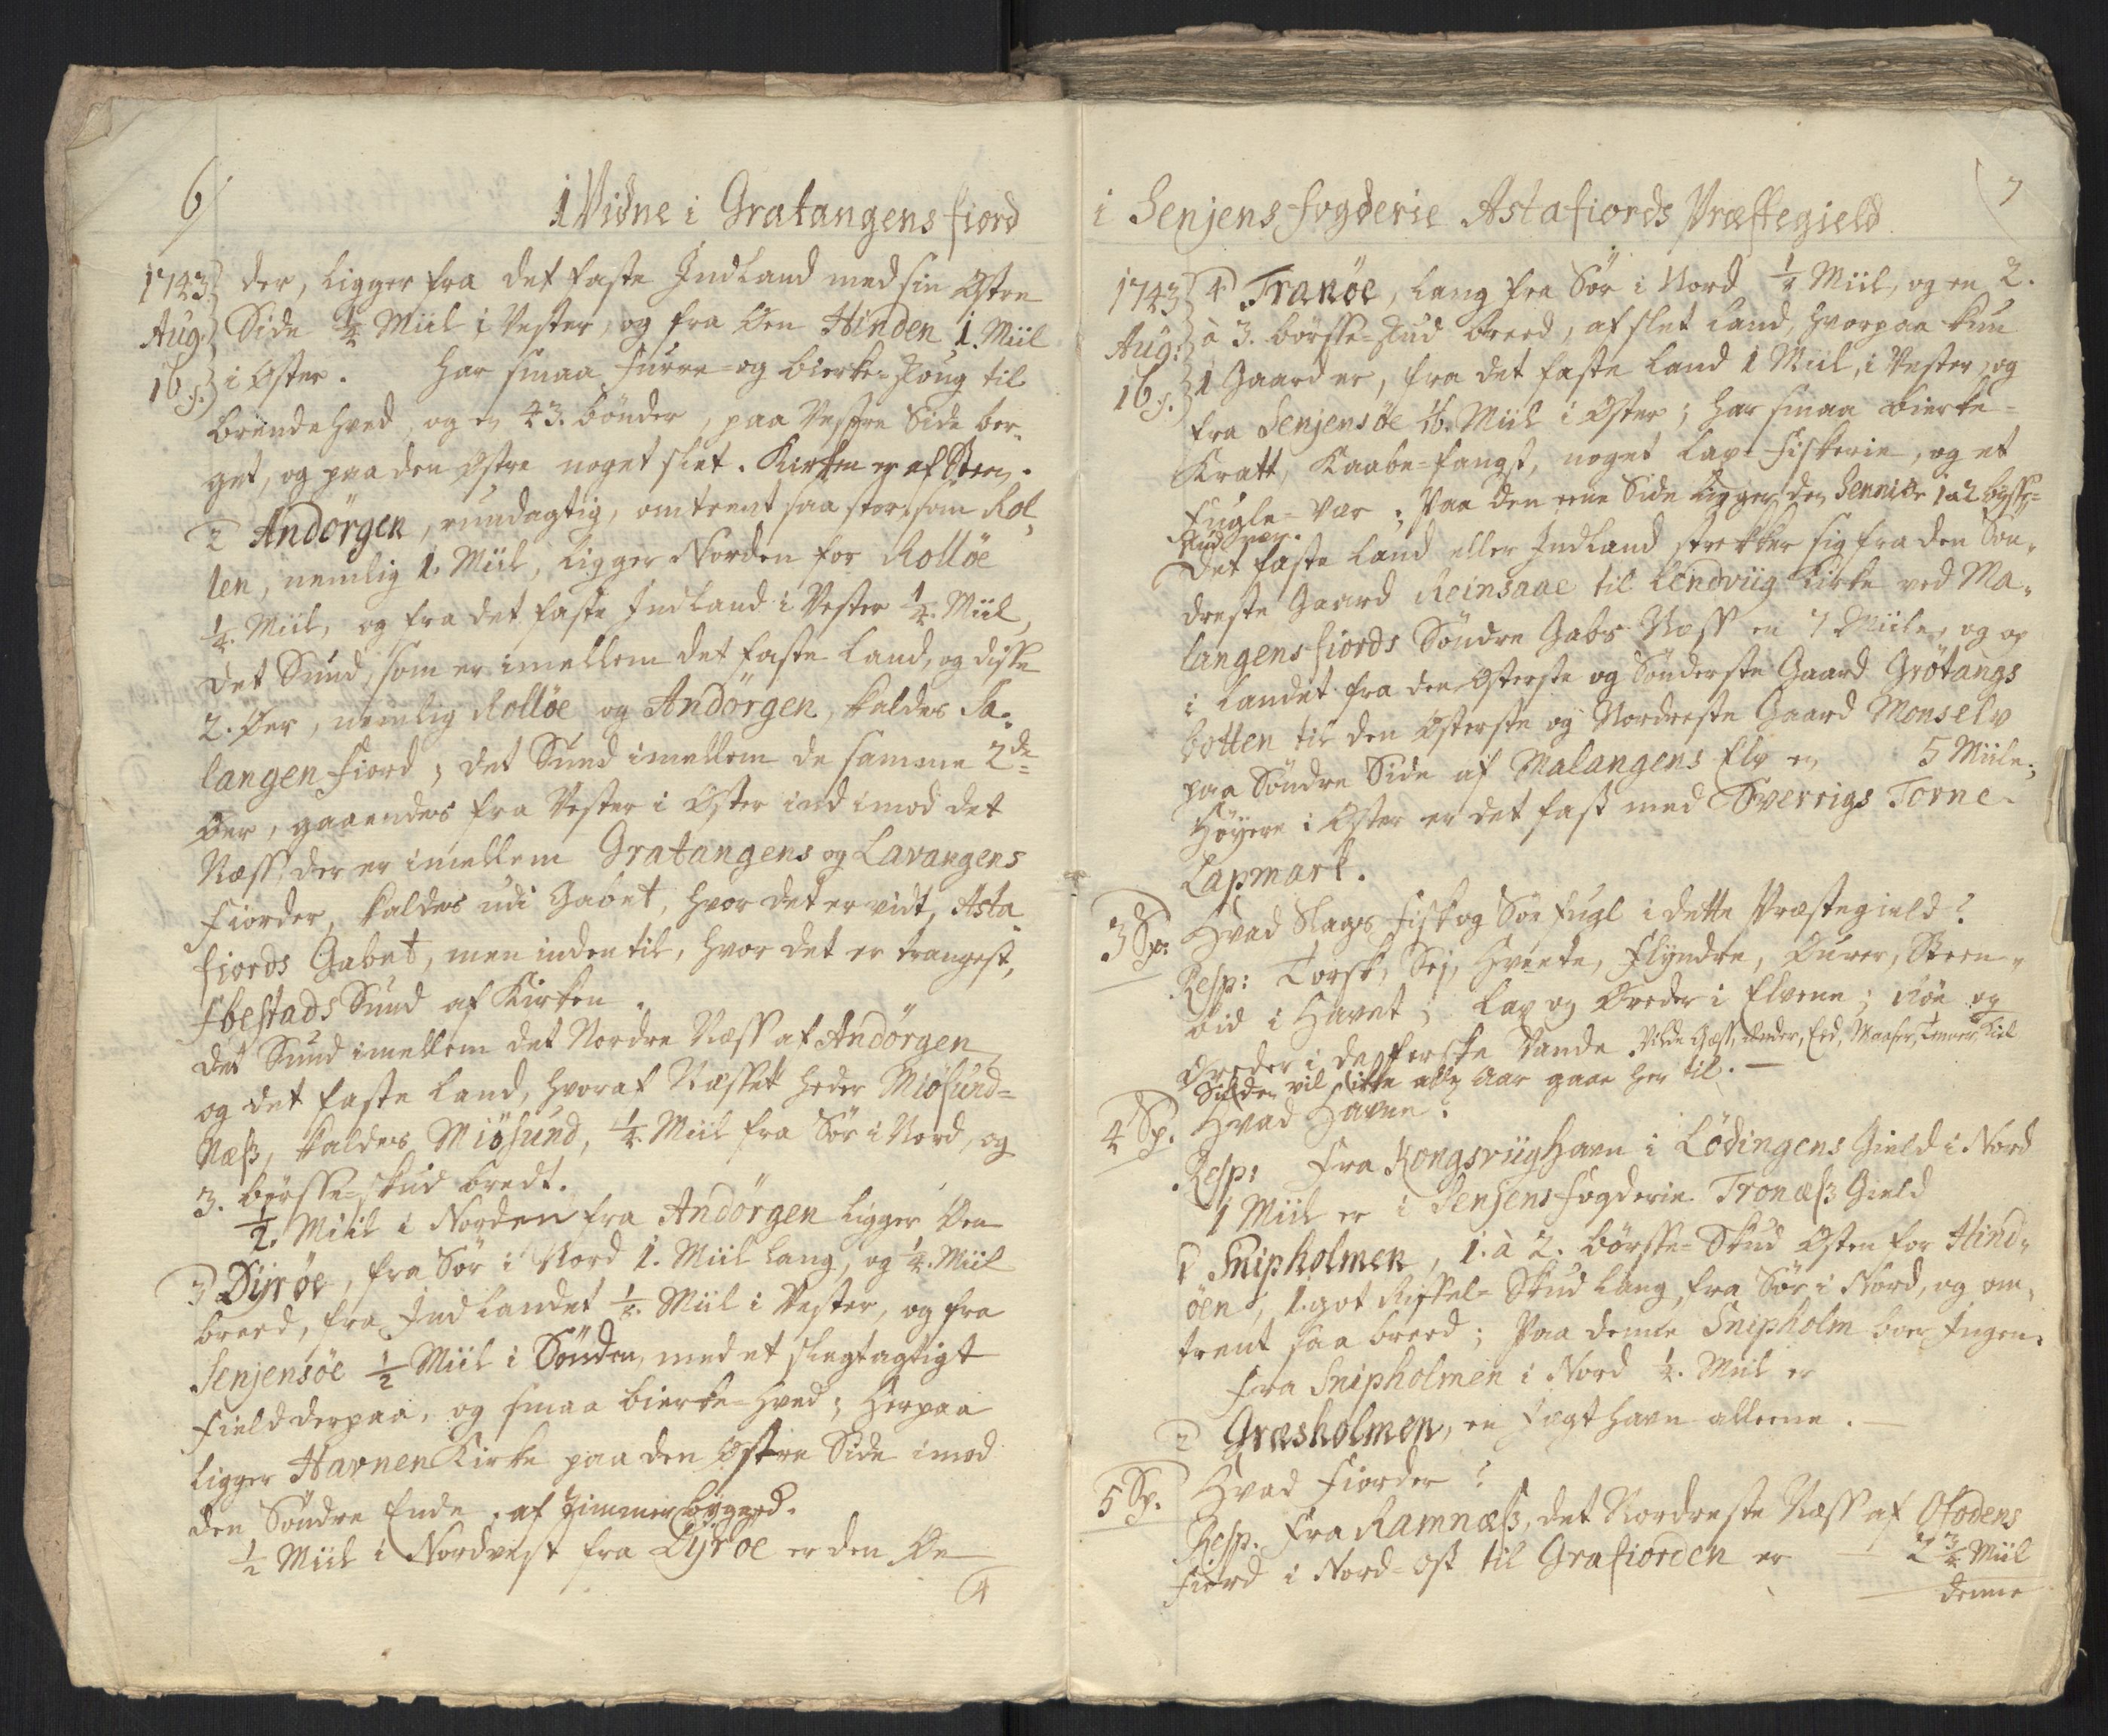 6/
1 Vidne i Gratangens fiord
1743 der, ligger fra det faste Indland med sin Østre
Aug: Side ¼ Miil i Vester, og fra Øen Hinden 1. Miil
16 s. i Øster. Har smaa furre- og birke-skoug til
brendehved, og er 43. bønder, paa Vestre Side ber-
get, og paa den Østre noget slet. Kirken er af Steen.
2 Andörgen, rundagtig, omtrent saa stor, som Rol-
len, nemlig 1. Miil, ligger Norden for Rolløe
¼. Miil, og fra det faste Indland i Vester ¼. Miil,
det Sund, som er imellem det faste land, og disse
2. Øer, nemlig Rolløe og Andörgen, kaldes Sa-
langen fiord; det Sund imellem de samme 2de
Øer, gaaendes fra Vester i Øster ind imod det
Næss, der er imellem Gratangens og Lavangens
Fiorder, kaldes udi Gabet, hvor det er vidt, Asta-
fiords Gabet, men inden til, hvor det er trangest,
Ibestads Sund af Kirken.
Det Sund imellem det Nordre Næss af Andörgen
og det faste land, hvoraf Næsset heder Miösund-
Næss, kaldes Miösund, ¼. Miil fra Sør i Nord, og
3. börsse-skud bredt.
½. Miil i Norden fra Andörgen ligger Øen
3 Dyrøe, fra Sør i Nord 1. Miil lang, og ¼. Miil
breed, fra Indlandet ¼. Miil i Vester, og fra
Senjensøe ½ Miil i Sönden, med et slegtagtigt
Field derpaa, og smaa bierke-hved; Herpaa
ligger Havnen Kirke paa den Østre Side imod
den Söndre Ende, af Timmer bygged.
½ Miil i Nordvest fra Dyrøe er den Øe
4
7
i Senjens fogderie Astafiords Præstegield
1743 4 Tranöe, lang fra Sør i Nord ¼ Miil, og en 2.
Aug: à 3. börsse-skud breed, af slet land, hvorpaa kun
16 s. 1 Gaard er, fra det faste land 1 Miil, i Vester, og
fra Senjensöe 1/6. Miil i Øster; har smaa bierke-
Kratt, Kaabe-fangst, noget lax-fiskerie, og et
fugle-Vær; Paa den ene Side ligger den Sennien 1 a 2 bysse-
skud nær.
Det faste land eller Indland strekker sig fra den Søn-
dreste Gaard Reinsaae til Lendviig Kirke ved Ma-
langens fiords Söndre Gabs Næss er 7 Miile, og op
i landet fra den Østerste og Sönderste Gaard Grötangs
botten til den Østerste og Nordreste Gaard Monselv
paa Söndre Side af Malangens Elv er 5 Miile;
Høyere i Øster er det fast med Sverrigs Torne-
Lapmark.
3 Sp: Hvad Slags Fisk og Søe fugl i dette Præstegield?
Resp: Torsk, Sej, Hveete, Flyndre, Øurer, Steen-
bid i Havet; Lax og Öreder i Elvene; Röe og
Öreder i de ferske Vande. Vilde Gæss, Ender, Eed, Maaser, Terner, Kiel
Silden vil ikke alle Aar gaae her til. —
4 Sp. Hvad Havne?
Resp: Fra Kongsviig havn i Lödingens Gield i Nord
1 Miil er i Senjens fogderie Tronæss Gield
1 Snipholmen, 1. à 2. börsse-Skud Østen for Hind-
öen, 1. got Riffel-Skud lang, fra Sør i Nord, og om-
trent saa breed; Paa denne Snipholm boer Ingen.
Fra Snipholmen i Nord ¼. Miil er
2 Græsholmen, en Jegt havn alleene. —
5 Sp. Hvad Fiorder?
Resp. Fra Ramnæss, det Nordreste Næss af Ofodens
Fiord i Nord-Ost til Grafiorden er — 2 ¾ Miil
denne